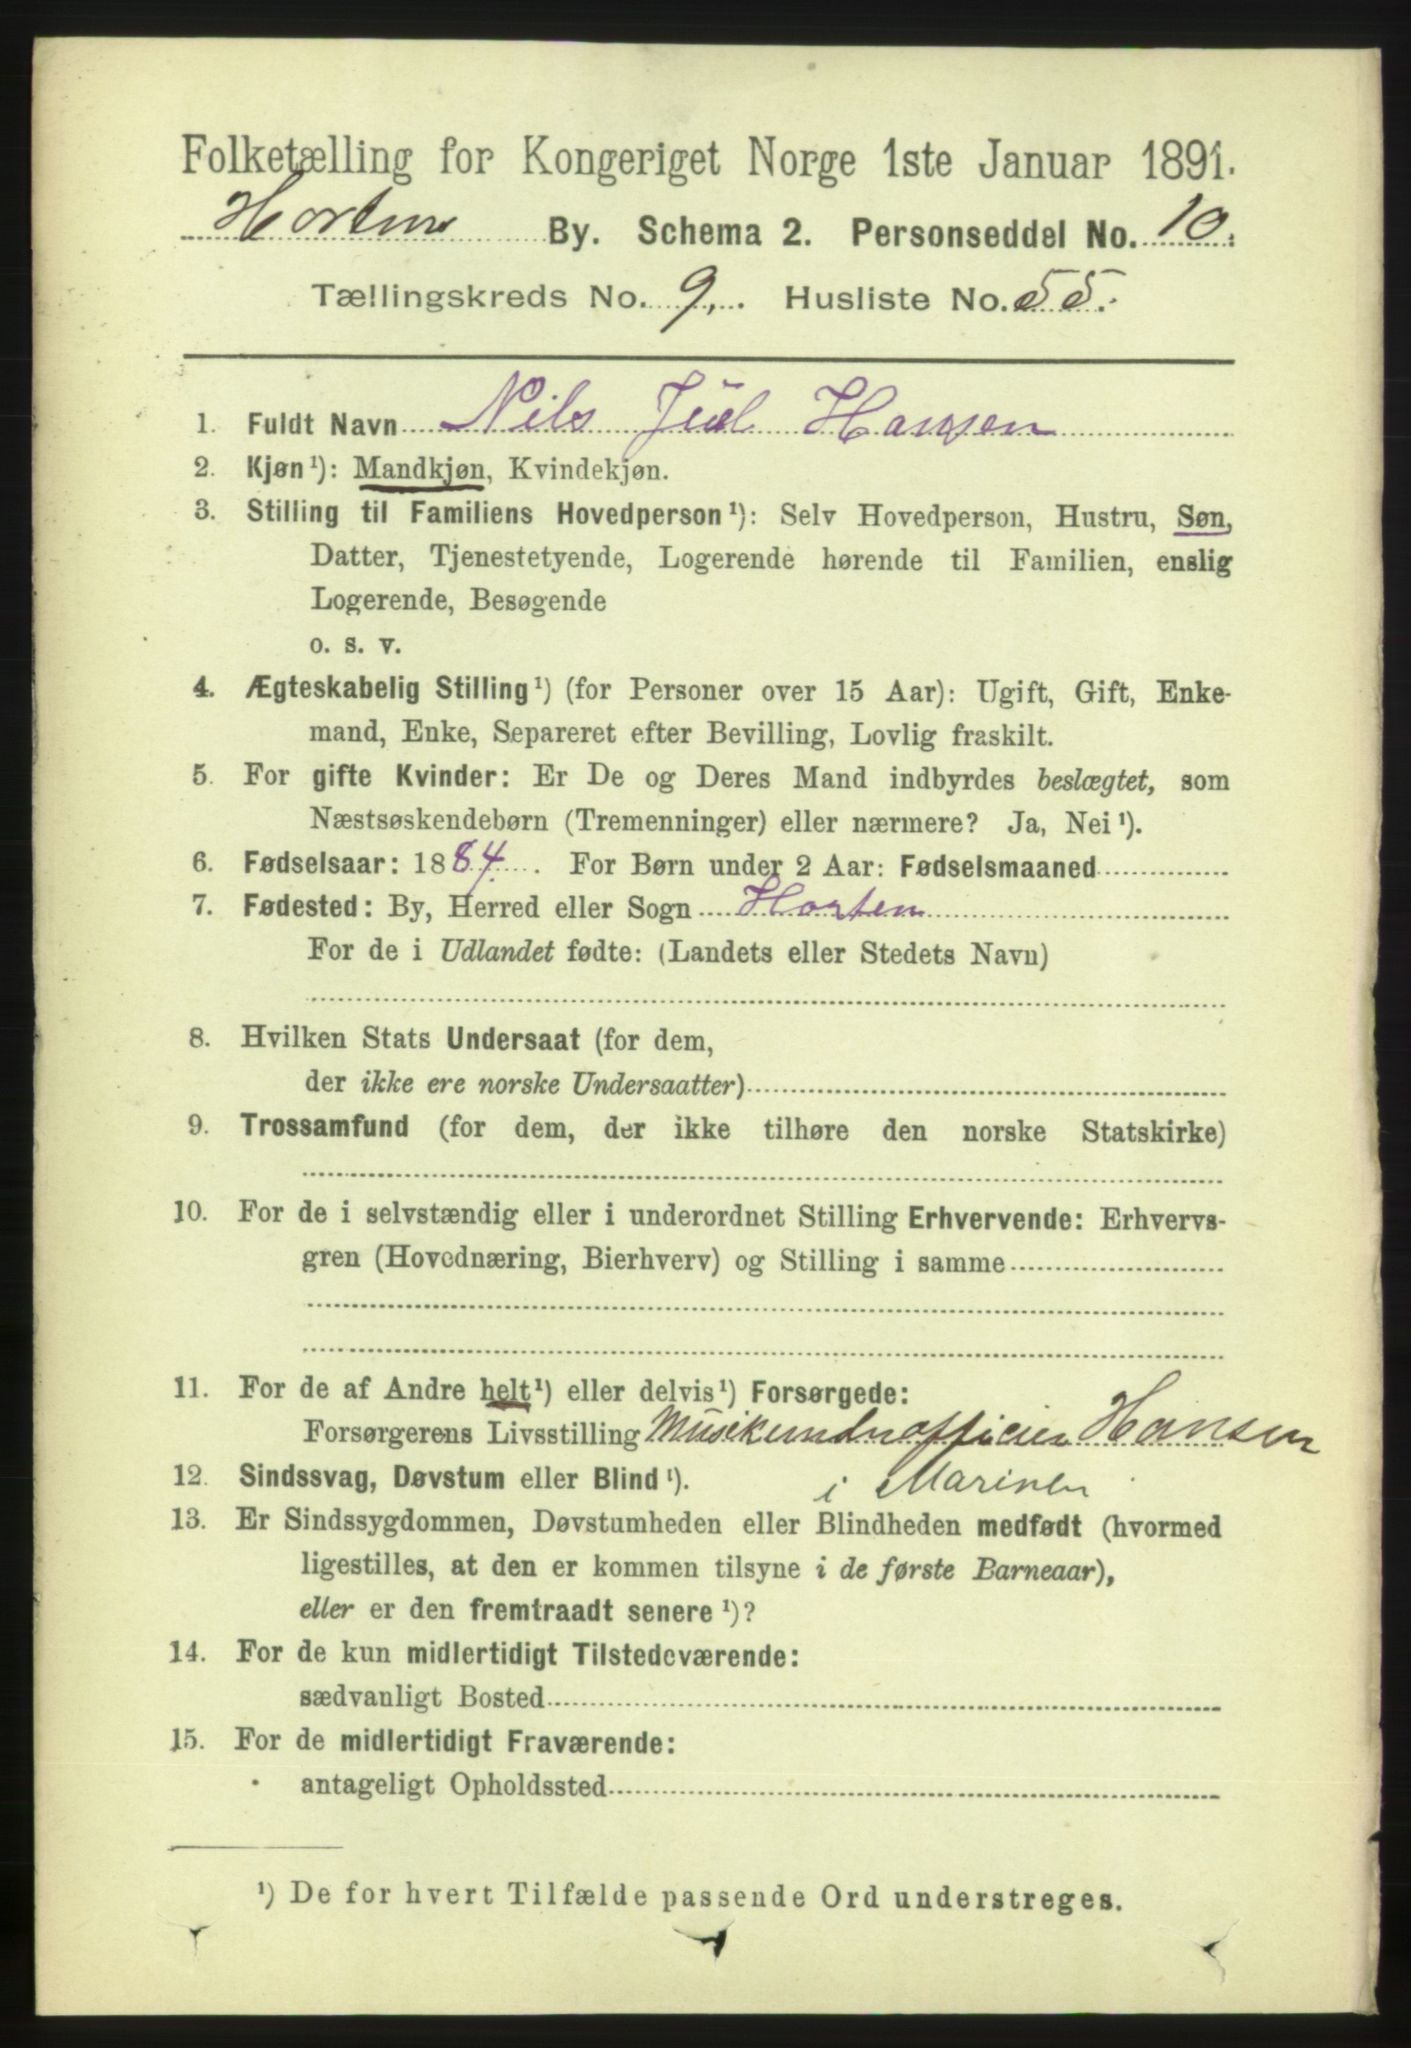 Folketælling for Kongeriget Norge 1ste Januar 1891.
Hortens By. Schema 2. Personseddel No. 10.
Tællingskreds No. 9. Husliste No. 55.
1. Fuldt Navn Nils Juel Hansen
2. Kjøn¹): Mandkjøn, Kvindekjøn.
3. Stilling til Familiens Hovedperson¹): Selv Hovedperson, Hustru, Søn,
Datter, Tjenestetyende, Logerende hørende til Familien, enslig
Logerende, Besøgende
o. s. v.
4. Ægteskabelig Stilling¹) (for Personer over 15 Aar): Ugift, Gift, Enke-
mand, Enke, Separeret efter Bevilling, Lovlig fraskilt.
5. For gifte Kvinder: Er De og Deres Mand indbyrdes beslægtet, som
Næstsøskendebørn (Tremenninger) eller nærmere? Ja, Nei¹).
6. Fødselsaar: 1884. For Børn under 2 Aar: Fødselsmaaned
7. Fødested: By, Herred eller Sogn Horten
For de i Udlandet fødte: (Landets eller Stedets Navn)
8. Hvilken Stats Undersaat (for dem,
der ikke ere norske Undersaatter)
9. Trossamfund (for dem, der ikke tilhøre den norske Statskirke)
10. For de i selvstændig eller i underordnet Stilling Erhvervende: Erhvervs-
gren (Hovednæring, Bierhverv) og Stilling i samme
11. For de af Andre helt¹) eller delvis¹) Forsørgede:
Forsørgerens Livsstilling Musikunderofficier Hansen
12. Sindssvag, Døvstum eller Blind¹). i Marinen
13. Er Sindssygdommen, Døvstumheden eller Blindheden medfødt (hvormed
ligestilles, at den er kommen tilsyne i de første Barneaar),
eller er den fremtraadt senere¹)?
14. For de kun midlertidigt Tilstedeværende:
sædvanligt Bosted
15. For de midlertidigt Fraværende:
antageligt Opholdssted
¹) De for hvert Tilfælde passende Ord understreges.